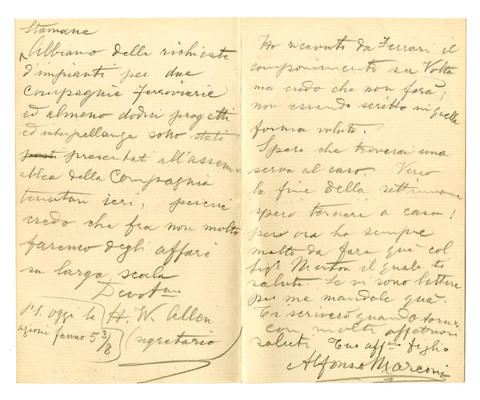 Stamane
Abbiamo delle richieste
d'impianti per due
Compagnie ferroviarie
ed almeno dodici progetti
ed interpellanza sono stati
presentati all'assem
blea della Compagnia
tenutasi ieri, perciò
credo che fra non molto
faremo degli affari
su larga scala
Devotmo
H. W. Allen
(segretario)
P.S. oggi le
azioni fanno 5 3/8
Ho ricevuto da Ferrari il
componimento su Volta
ma credo che non farà,
non essendo scritto in quella
forma voluta.
Spero che troverai una
serva al caso. Verso
la fine della settimana
spero tornare a casa;
però ora ho sempre
molto da fare qua col
Sigr Merton il quale ti
saluta. Se vi sono lettere
per me mandale qua.
Ti scriverò quando torno,
con molti affettuosi
saluti Tuo affmo figlio
Alfonso Marconi